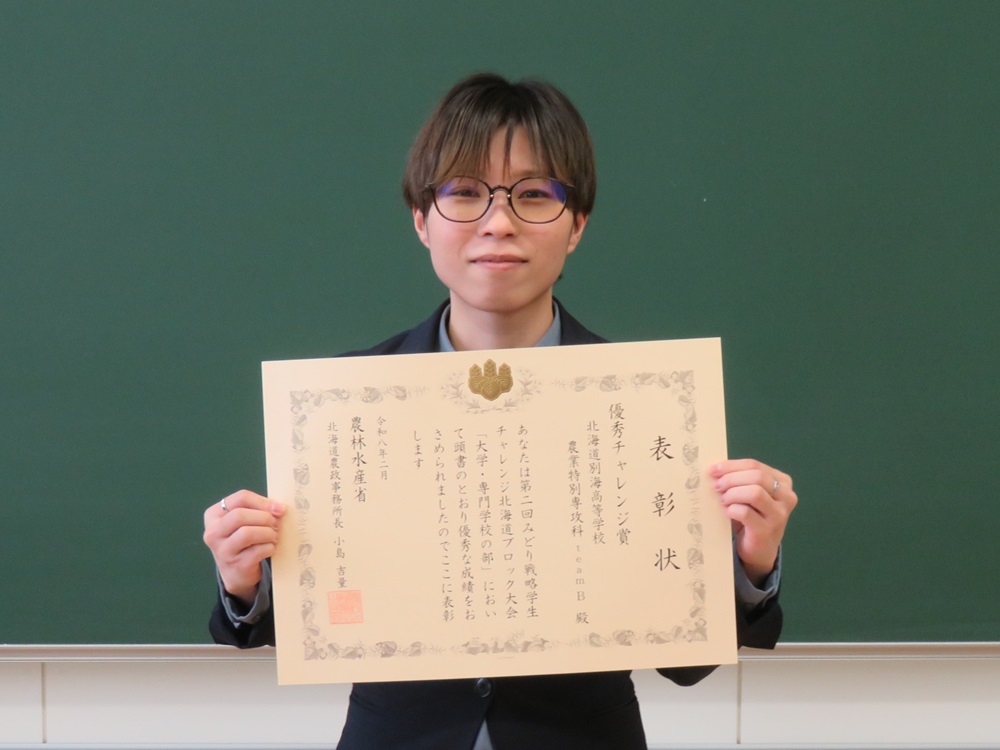 表彰状
優秀チャレンジ賞
北海道別海高等学校
農業特別専攻科 teamB 殿
あなたは第二回みどり戦略学生
チャレンジ北海道ブロック大会
「大学・専門学校の部」におい
て頭書のとおり優秀な成績をお
さめられましたのでここに表彰
します
令和八年二月
農林水産省
北海道農政事務所長 小島 吉量